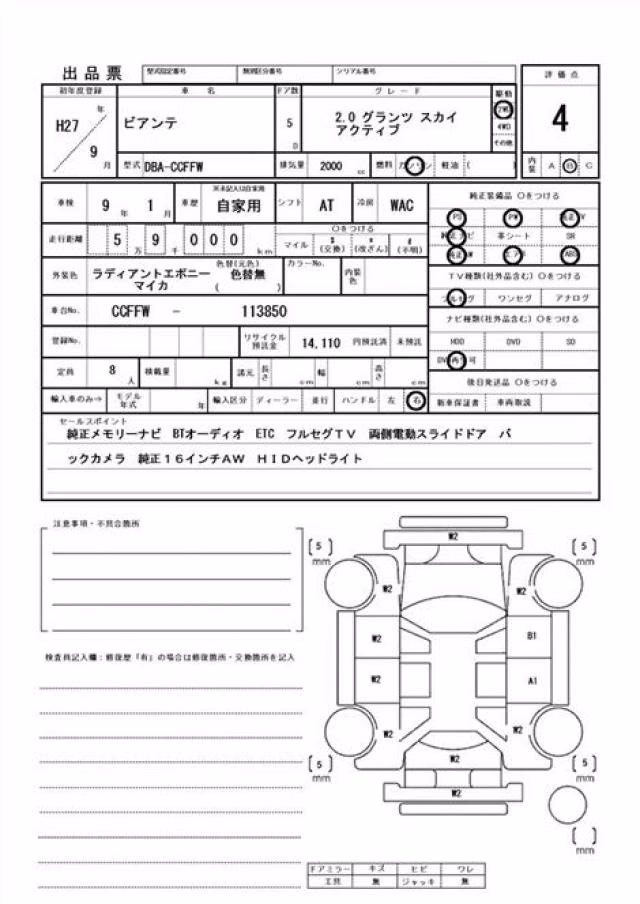 出品票 型式指定番号 類別区分番号 シリアル番号
評価点
初年度登録 車名 ドア数 グレード 駆動
H27 年 ビアンテ 5 D 2.0 グランツ スカイ 2WD 4
アクティブ 4WD
9 月 その他
型式 DBA-CCFFW 排気量 2000 cc 燃料 ガソリン 軽油 ( ) 内装 A B C
車検 9 年 1 月 車歴 ※未記入は自家用 自家用 シフト AT 冷房 WAC 純正装備品 ○をつける
PS PW 純正TV
走行距離 5 万 9 千 0 0 0 km ○をつける マイル $ (交換) * (改ざん) # (不明) 純正ナビ 革シート SR
純正AW エアB ABS
外装色 ラディアントエボニー 色替(元色) 色替無 カラーNo. 内装色 TV種類(社外品含む) ○をつける
マイカ ( ) フルセグ ワンセグ アナログ
車台No. CCFFW - 113850 ナビ種類(社外品含む) ○をつける
登録No. リサイクル預託金 14,110 円預託済 未預託 HDD DVD SD
DVD再生可
定員 8 人 積載量 kg 諸元 長さ cm 幅 cm 高さ cm 後日発送品 ○をつける
輸入車のみ⇒ モデル年式 年 輸入区分 ディーラー 並行 ハンドル 左 右 新車保証書 車両取説
セールスポイント
純正メモリーナビ BTオーディオ ETC フルセグTV 両側電動スライドドア バ
ックカメラ 純正16インチAW HIDヘッドライト
注意事項・不具合箇所
検査員記入欄:修復歴「有」の場合は修復箇所・交換箇所を記入
W2
[5] mm [5] mm
W2 W2
W2 B1
W2 A1
W2 W2
W2
[5] mm [5] mm
W2
[ ] mm
ドアミラー キズ ヒビ ワレ
工具 無 ジャッキ 無